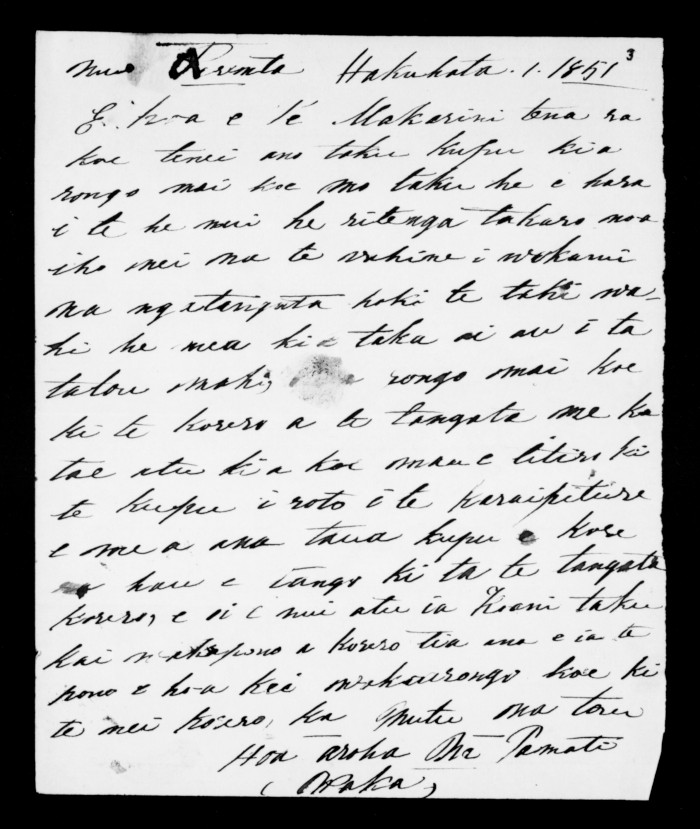 3
Akuhata . 1 . 1851
E hoa e te Makarini tena ra
koe tenei ano taku kupu kia
rongo mai koe mo taku he e hara
i te he nui he ritenga takaro noa
iho nei na te wahine i wakanui
na ngatangata hoki te taki wa-
hi he mea kia taka ai au i ta
taou mahi, rongo mai koe
ki te korero a te tangata me ka
tae atu kia koe mau e titiro ki
te kupu i roto i te karaipiture
e mea ana taua kupu e kore
hau e tango ki ta te tangata
korero, e oi i nui atu ia Hoani taku
kai wakapono a korero tia ana e ia te
pono e hoa kei wakaurongo koe ki
te nei korero, ka mutu na tou
Hoa aroha Na Tamati
(Waka)